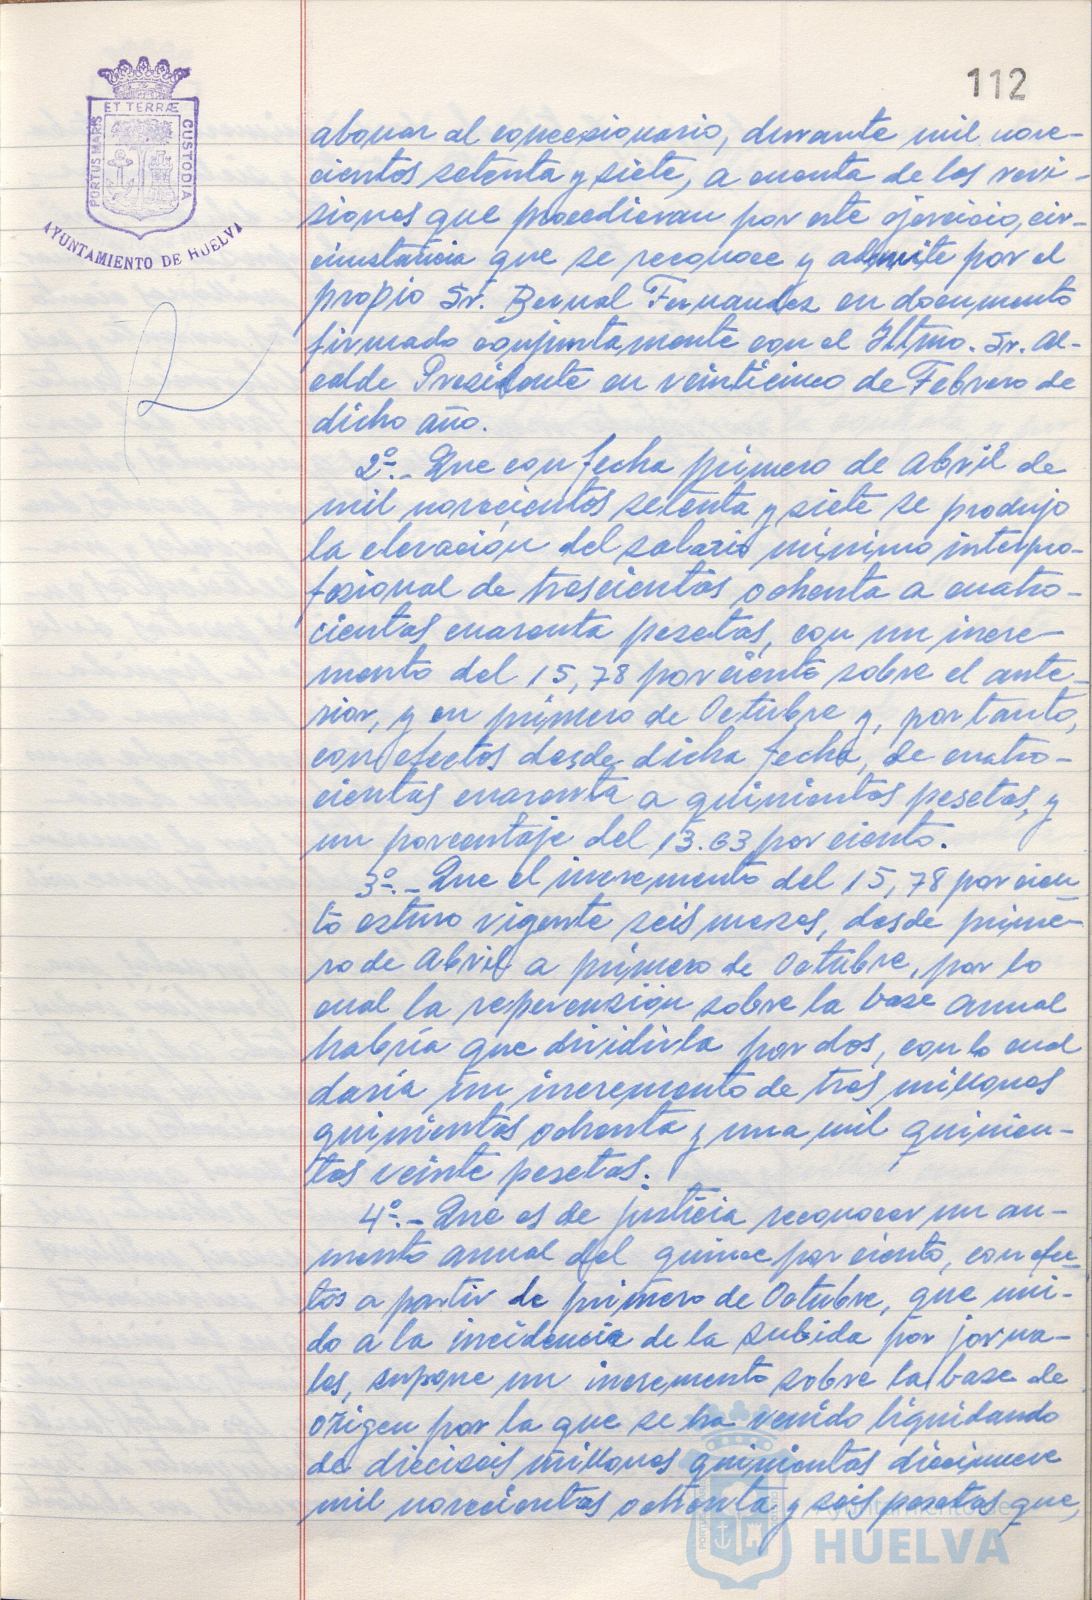 112
ET TERRÆ
PORTUS MARIS
CUSTODIA
AYUNTAMIENTO DE HUELVA
abonar al concesionario, durante mil nove-
cientos setenta y siete, a cuenta de las revi-
siones que procedieran por este ejercicio, cir-
cunstancia que se reconoce y admite por el
propio Sr. Bernal Fernandez en documento
firmado conjuntamente con el Iltmo. Sr. Al-
calde Presidente en veinticinco de Febrero de
dicho año.
2º.- Que con fecha primero de Abril de
mil novecientos setenta y siete se produjo
la elevación del salario mínimo interpro-
fesional de trescientas ochenta a cuatro-
cientas cuarenta pesetas, con un incre-
mento del 15,78 por ciento sobre el ante-
rior, y en primero de Octubre y, por tanto,
con efectos desde dicha fecha, de cuatro-
cientas cuarenta a quinientas pesetas, y
un porcentaje del 13.63 por ciento.
3º.- Que el incremento del 15,78 por cien-
to estuvo vigente seis meses, desde prime-
ro de Abril a primero de Octubre, por lo
cual la repercusión sobre la base anual
habría que dividirla por dos, con lo cual
daría un incremento de tres millones
quinientas ochenta y una mil quinien-
tas veinte pesetas.
4º.- Que es de justicia reconocer un au-
mento anual del quince por ciento, con efec-
tos a partir de primero de Octubre, que uni-
do a la incidencia de la subida por jorna-
les, supone un incremento sobre la base de
origen por la que se ha venido liquidando
de dieciseis millones quinientas diecinueve
mil novecientas ochenta y seis pesetas que,
Ayuntamiento de
HUELVA